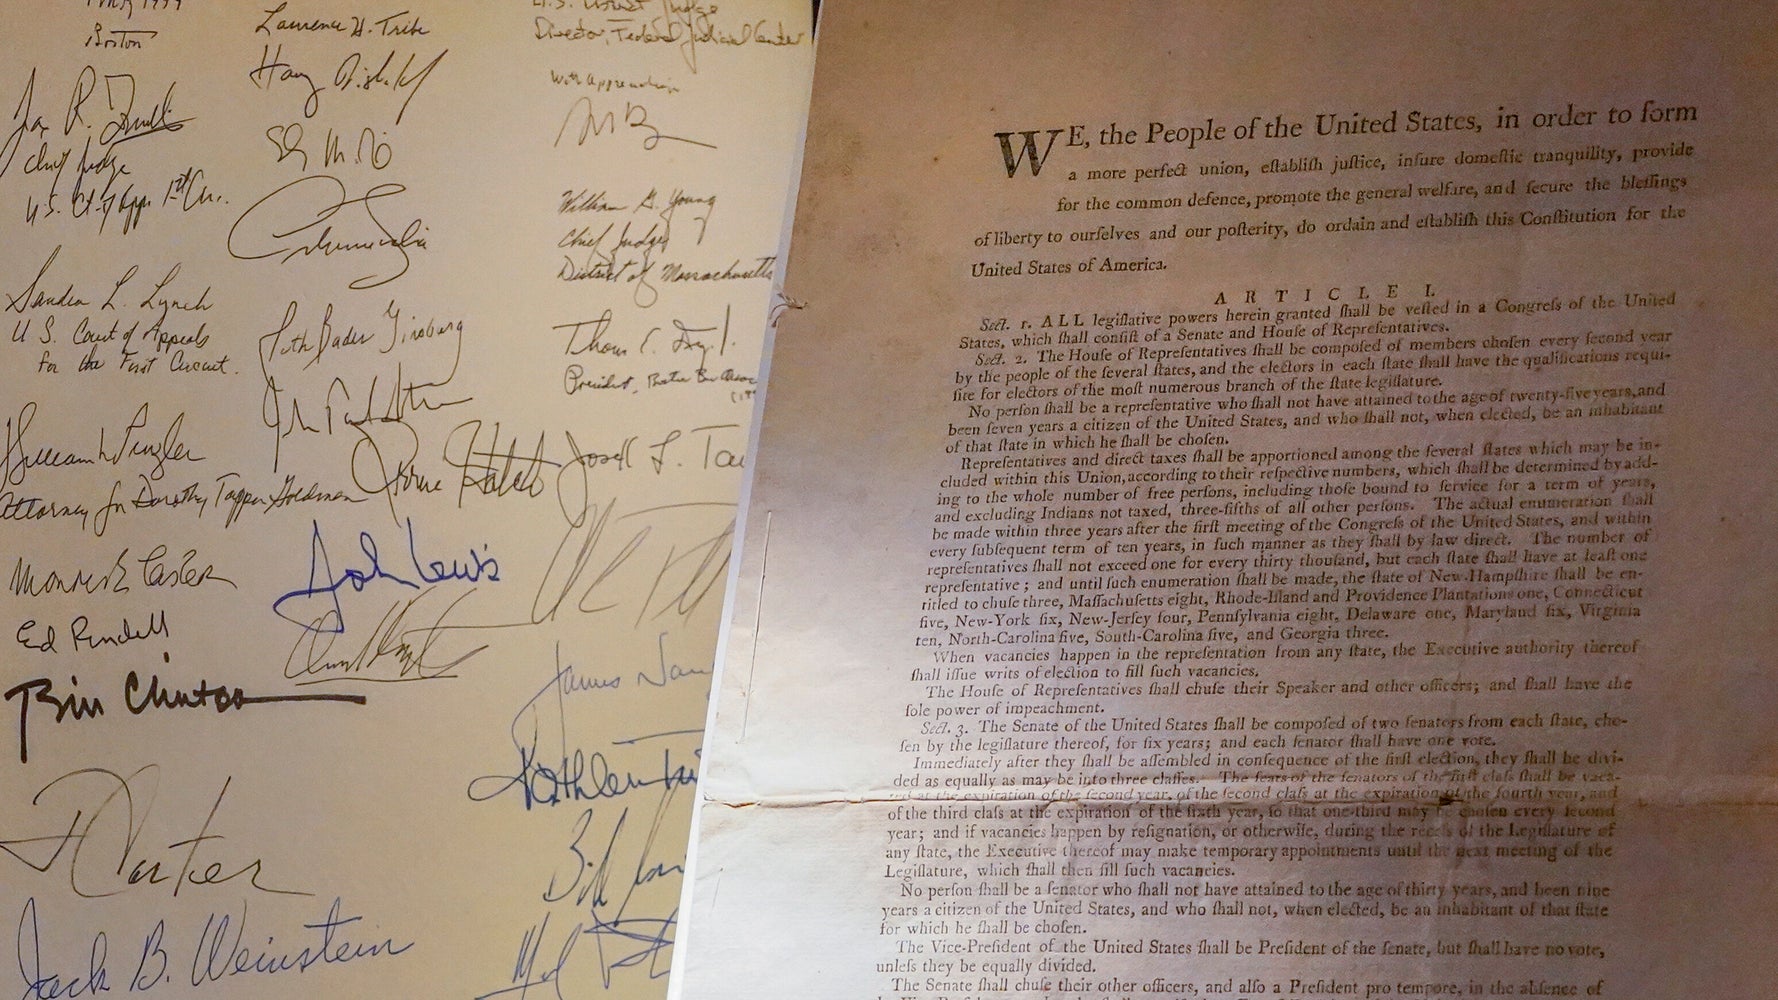 Boston
Chief Judge
Sandra L. Lynch
U.S. Court of Appeals
for the First Circuit.
Attorney for Dorothy Tapper Goldman
Ed Rendell
Bill Clinton
J Carter
Jack B. Weinstein
Laurence H. Tribe
Ruth Bader Ginsburg
Orrin Hatch
John Lewis
Director, Federal Judicial Center
With appreciation
William G. Young
Chief Judge
District of Massachusetts
President,
James
Kathleen
Bill
WE, the People of the United States, in order to form
a more perfect union, eſtabliſh juſtice, inſure domeſtic tranquility, provide
for the common defence, promote the general welfare, and ſecure the bleſſings
of liberty to ourſelves and our poſterity, do ordain and eſtabliſh this Conſtitution for the
United States of America.
ARTICLE I.
Sect. 1. ALL legiſlative powers herein granted ſhall be veſted in a Congreſs of the United
States, which ſhall conſiſt of a Senate and Houſe of Repreſentatives.
Sect. 2. The Houſe of Repreſentatives ſhall be compoſed of members choſen every ſecond year
by the people of the ſeveral ſtates, and the electors in each ſtate ſhall have the qualifications requi-
ſite for electors of the moſt numerous branch of the ſtate legiſlature.
No perſon ſhall be a repreſentative who ſhall not have attained to the age of twenty-five years, and
been ſeven years a citizen of the United States, and who ſhall not, when elected, be an inhabitant
of that ſtate in which he ſhall be choſen.
Repreſentatives and direct taxes ſhall be apportioned among the ſeveral ſtates which may be in-
cluded within this Union, according to their reſpective numbers, which ſhall be determined by add-
ing to the whole number of free perſons, including thoſe bound to ſervice for a term of years,
and excluding Indians not taxed, three-fifths of all other perſons. The actual enumeration ſhall
be made within three years after the firſt meeting of the Congreſs of the United States, and within
every ſubſequent term of ten years, in ſuch manner as they ſhall by law direct. The number of
repreſentatives ſhall not exceed one for every thirty thouſand, but each ſtate ſhall have at leaſt one
repreſentative; and until ſuch enumeration ſhall be made, the ſtate of New-Hampſhire ſhall be en-
titled to chuſe three, Maſſachuſetts eight, Rhode-Iſland and Providence Plantations one, Connecticut
five, New-York ſix, New-Jerſey four, Pennſylvania eight, Delaware one, Maryland ſix, Virginia
ten, North-Carolina five, South-Carolina five, and Georgia three.
When vacancies happen in the repreſentation from any ſtate, the Executive authority thereof
ſhall iſſue writs of election to fill ſuch vacancies.
The Houſe of Repreſentatives ſhall chuſe their Speaker and other officers; and ſhall have the
ſole power of impeachment.
Sect. 3. The Senate of the United States ſhall be compoſed of two ſenators from each ſtate, cho-
ſen by the legiſlature thereof, for ſix years; and each ſenator ſhall have one vote.
Immediately after they ſhall be aſſembled in conſequence of the firſt election, they ſhall be divi-
ded as equally as may be into three claſſes. The ſeats of the ſenators of the firſt claſs ſhall be vaca-
ted at the expiration of the ſecond year, of the ſecond claſs at the expiration of the fourth year, and
of the third claſs at the expiration of the ſixth year, ſo that one-third may be choſen every ſecond
year; and if vacancies happen by reſignation, or otherwiſe, during the receſs of the Legiſlature of
any ſtate, the Executive thereof may make temporary appointments until the next meeting of the
Legiſlature, which ſhall then fill ſuch vacancies.
No perſon ſhall be a ſenator who ſhall not have attained to the age of thirty years, and been nine
years a citizen of the United States, and who ſhall not, when elected, be an inhabitant of that ſtate
for which he ſhall be choſen.
The Vice-Preſident of the United States ſhall be Preſident of the ſenate, but ſhall have no vote,
unleſs they be equally divided.
The Senate ſhall chuſe their other officers, and alſo a Preſident pro tempore, in the abſence of